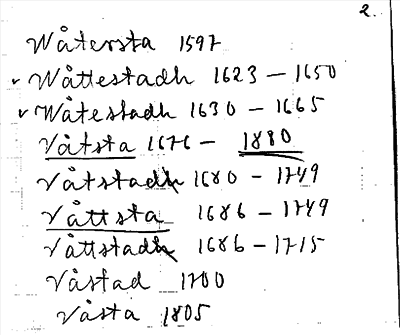 2.
Wåtersta 1597
v Wåttestadh 1623 – 1650
v Wåtestadh 1630 – 1665
Våtsta 1676 – 1880
Våtstadh 1680 – 1749
Våttsta 1686 – 1749
Våttstadh 1686 – 1715
Våstad 1700
Våsta 1805